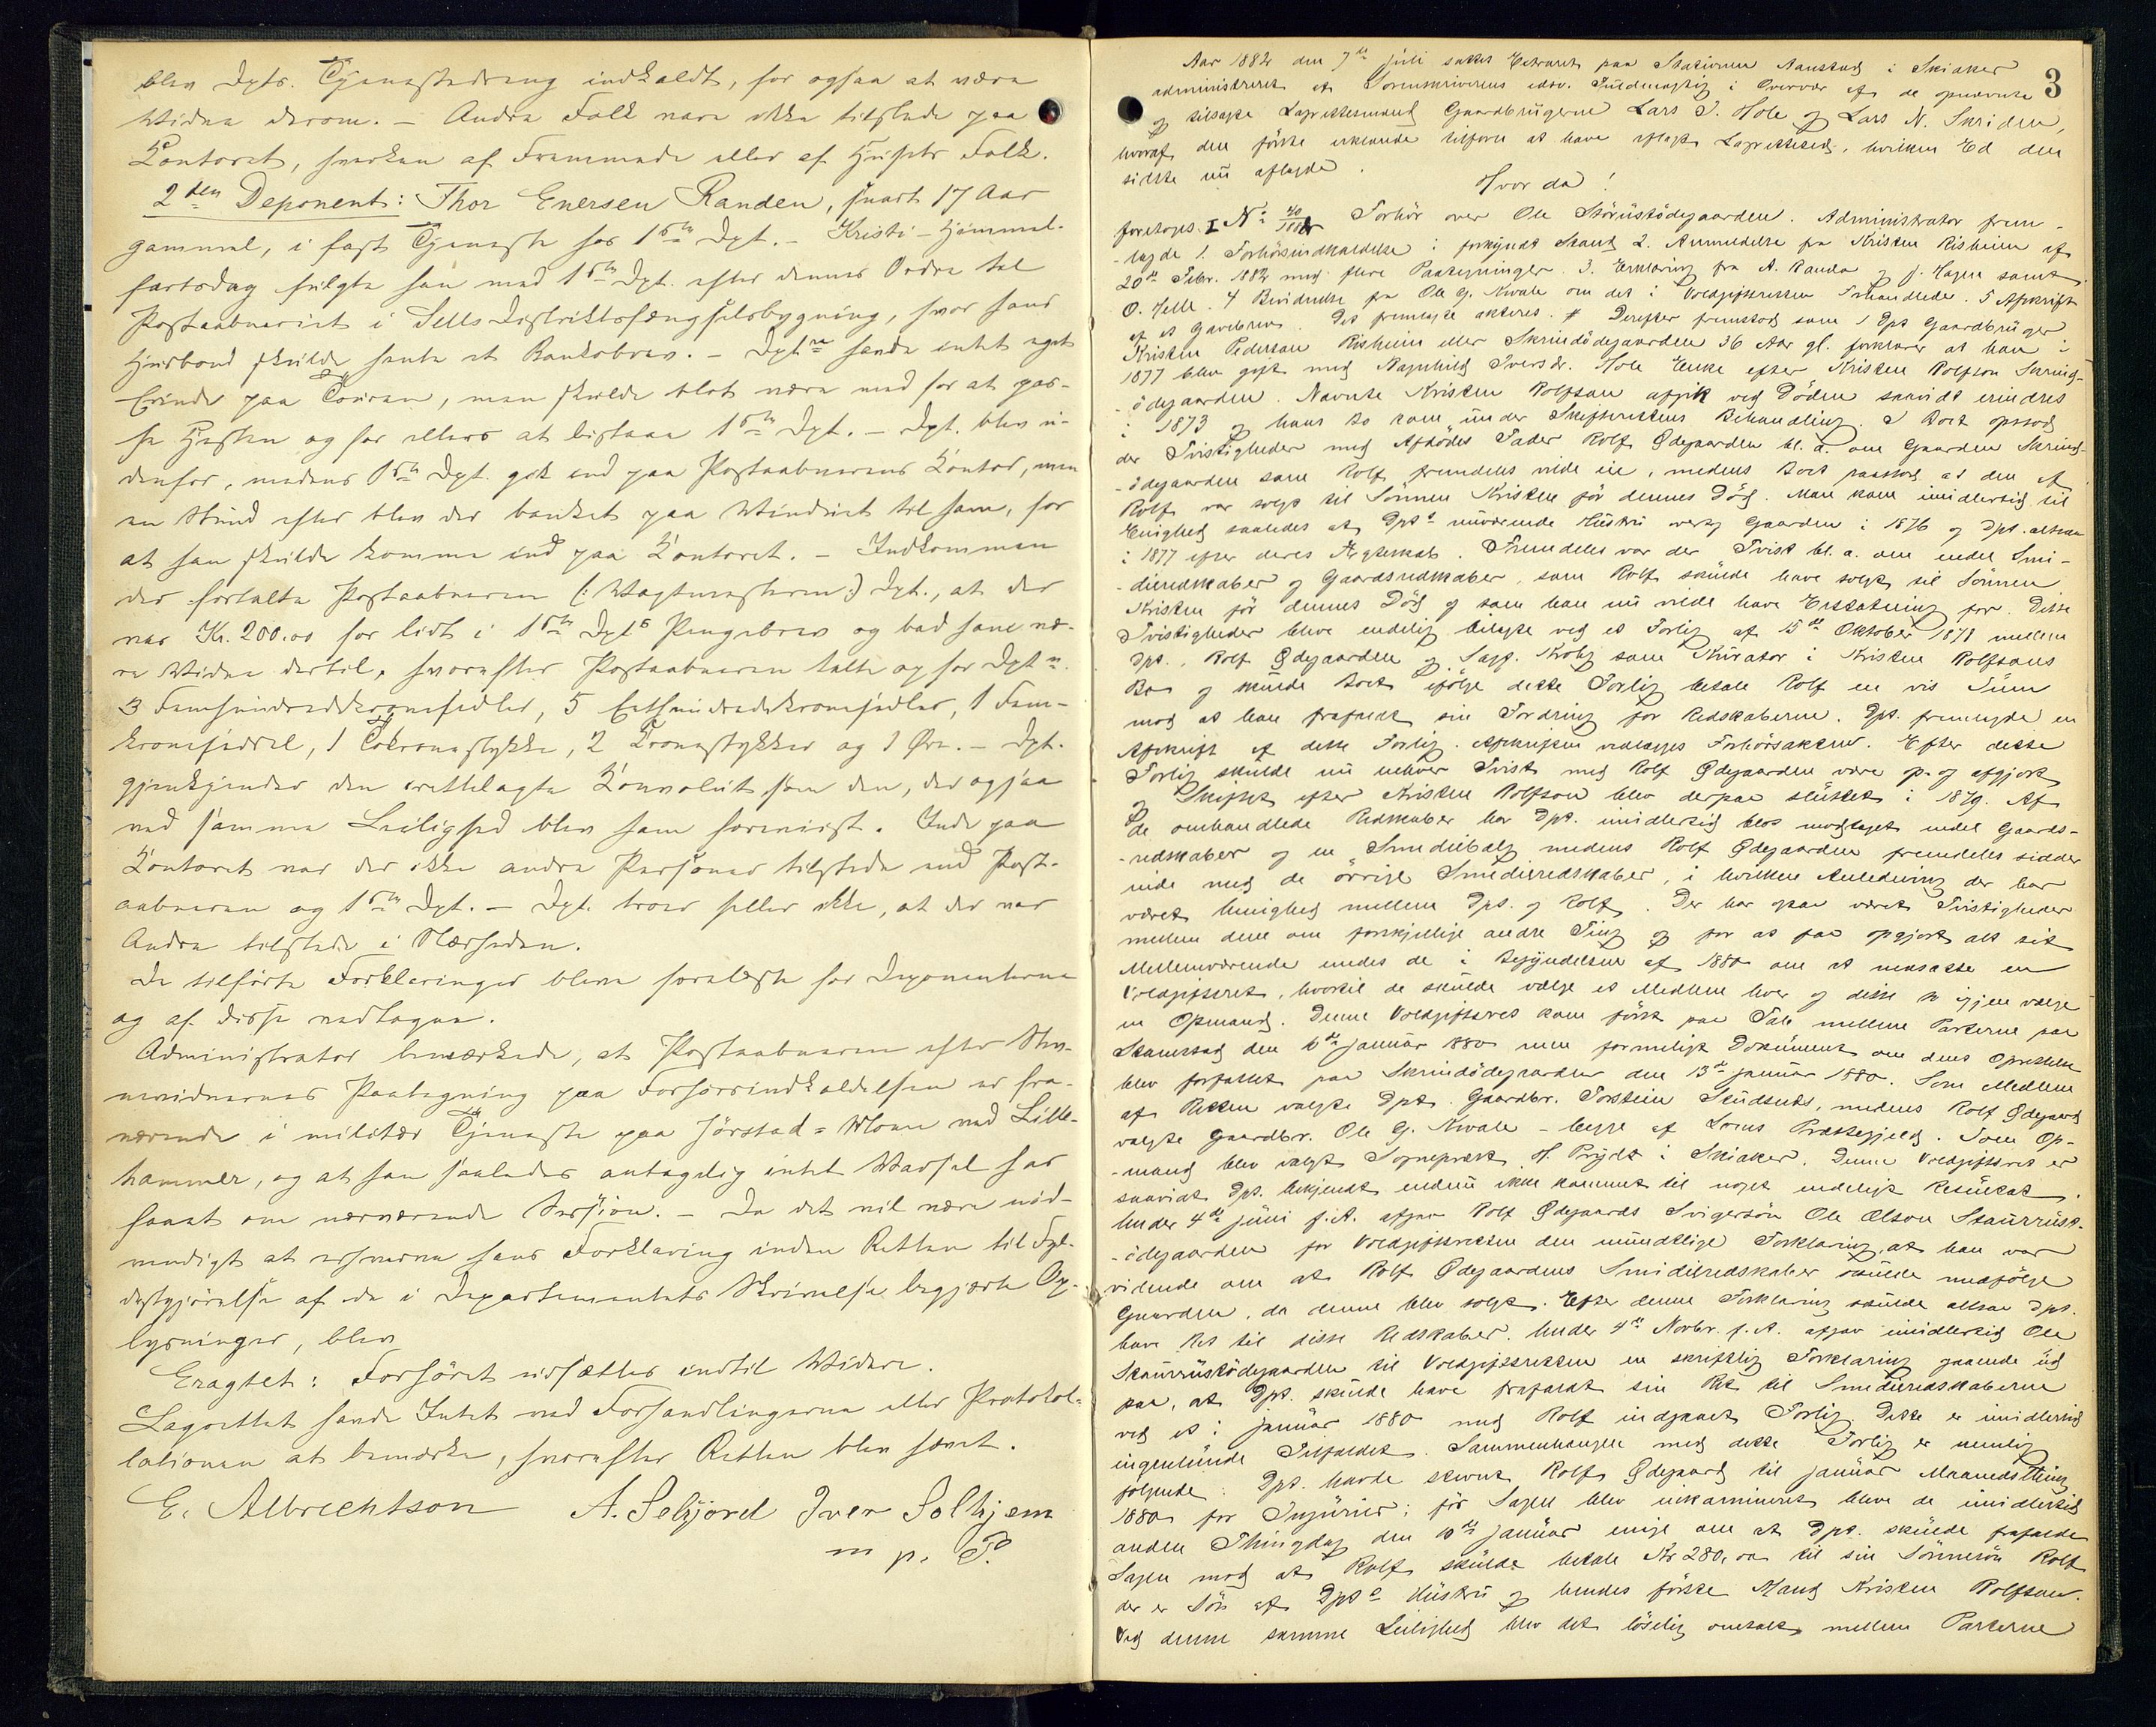 blev Dpts. Tjenestedreng indkaldt, for ogsaa at være
Vidne derom. – Andre Folk vare ikke tilstede paa
Kontoret, hverken af Fremmede eller af Husets Folk.
2den Deponent: Thor Enersen Randen, snart 17 Aar
gammel, i fast Tjeneste hos 1ste Dpt. – Kristi-Himmel-
fartsdag fulgte han med 1ste Dpt. efter dennes Ordre til
Postaabneriet i Sells Distriktsfængselsbygning, hvor hans
Husbond skulde hente et Bankobrev. – Dptn havde intet eget
Erinde paa Touren, men skulde blot være med for at pas-
se Hesten og for ellers at bistaa 1ste Dpt. – Dpt. blev u-
denfor, medens 1ste Dpt. gik ind paa Postaabnerens Kontor, men
en Stund efter blev der banket paa Vinduet til ham, for
at han skulde komme ind paa Kontoret. – Indkommen
der fortalte Postaabneren (: Vagtmesteren :) Dpt., at der
var Kr. 200.00 for lidt i 1ste Dpts Pengebrev og bad ham væ-
re Vidne dertil, hvorefter Postaabneren talte op for Dptn
3 Femhundredekronesedler, 5 Ethundredekronesedler, 1 Fem-
kroneseddel, 1 Tokronestykke, 2 Kronestykker og 1 Øre. – Dpt.
gjenkjender den fremlagte Konvolut som den, der ogsaa
ved samme Leilighed blev ham forevist. Inde paa
Kontoret var der ikke andre Personer tilstede end Post-
aabneren og 1ste Dpt. – Dpt. troer heller ikke, at der var
Andre tilstede i Nærheden.
De tilførte Forklaringer bleve forelæste for Deponenterne
og af disse vedtagne.
Administrator bemærkede, at Postaabneren efter Stev-
nevidnernes Paategning paa Forhørsindkaldelsen er fra-
værende i militær Tjeneste paa Jørstad-Moen ved Lille-
hammer, og at han saaledes antagelig intet Varsel har
faaet om nærværende Session. – Da det vil være nød-
vendigt at erhverve hans Forklaring inden Retten til Fyl-
destgjørelse af de i Departementets Skrivelse begjærte Op-
lysninger, blev
Eragtet: Forhøret udsættes indtil Videre.
Lagrettet havde Intet ved Forhandlingerne eller Protokol-
lationen at bemærke, hvorefter Retten blev hævet.
E. Albrechtson A. Selsjord Iver Solhjem
m p. P.
3
Aar 1882 den 7de juli sattes Extraret paa Stationen Aanstad i Skiaker
administreret af Sorenskriverens edsv. Fuldmægtig i Overvær af de opnævnte
og tilsagte Lagrettesmænd Gaardbrugerne Lars I. Hole og Lars N. Skriden,
hvoraf den første erklærede tilforn at have aflagt Lagretteseed, hvilken Ed den
sidste nu aflagde.
Hvor da!
foretoges I N: 40/1882 Forhør over Ole Störüstödegaarden. Administrator frem-
-lagde 1. Forhørsindkaldelse i forkyndt Stand 2. Anmeldelse fra Kristen Risheim af
20de Febr. 1882 med flere Paategninger. 3. Erklæring fra A. Randa og J. Hagen samt
O. Helle. 4 Bevidnelse fra Ole G. Kvale om det i Voldgiftsretten Forhandlede. 5 Afskrift
af et Gavebrev. Det fremlagte akteres. # Derefter fremstod som 1 Dpt Gaardbruger
Kristen Pedersen Risheim eller Skrindödegaarden 36 Aar gl. forklarer at han i
1877 blev gift med Ragnhild Iversdr. Hole Enke efter Kristen Rolfson Skrind-
-ödegaarden. Nævnte Kristen Rolfson afgik ved Döden saavidt erindres
i 1873 og hans Bo kom under Skifterettens Behandling. I Boet opstod
der Tvistigheder med Afdödes Fader Rolf Ødegaarden bl. a. om Gaarden Skrind-
-ödegaarden som Rolf fremdeles vilde eie, medens Boet paastod at den af
Rolf var solgt til Sönnen Kristen för dennes Död. Man kom imidlertid til
Enighed saaledes at Dpts nuværende Hustru overtog Gaarden i 1876 og Dpt. altsaa
i 1877 efter deres Ægteskab. Fremdeles var der Tvist bl. a. om endel Smi-
-dieredskaber og Gaardsredskaber, som Rolf skulde have solgt til Sönnen
Kristen för dennes Död og som han nu vilde have Erstatning for. Disse
Tvistigheder bleve endelig bilagte ved et Forlig af 15de Oktober 1878 mellem
Dpt., Rolf Ødegaarden og Sagf. Krohg som Kurator i Kristen Rolfsons
Bo og skulde Boet ifölge dette Forlig betale Rolf en vis Sum
mod at han frafaldt sin Fordring for Redskaberne. Dpt. fremlagde en
Afskrift af dette Forlig. Afskriften vedlægges Forhörsakten. Efter dette
Forlig skulde nu enhver Tvist med Rolf Ødegaarden være op- og afgjort
og Skiftet efter Kristen Rolfson blev derpaa sluttet i 1879. Af
de omhandlede Redskaber har Dpt. imidlertid blot modtaget endel Gaards-
-redskaber og en Smediebælg medens Rolf Ødegaarden fremdeles sidder
inde med de övrige Smidieredskaber, i hvilken Anledning der har
været Uenighed mellem Dpt. og Rolf. Der har ogsaa været Tvistigheder
mellem dem om forskjellige andre Ting og for at faa opgjort alt sit
Mellemværende enedes de i Begyndelsen af 1880 om at nedsætte en
Voldgiftsret, hvortil de skulde vælge et Medlem hver og disse to igjen vælge
en Opmand. Denne Voldgiftsret kom först paa Tale mellem Parterne paa
Skamstad den 10de Januar 1880 men formeligt Dokument om dens Oprettelse
blev forfattet paa Skrindödegaarden den 13de Januar 1880. Som Medlem
af Retten valgte Dpt. Gaardbr. Torstein Skudsnes, medens Rolf Ødegaard
valgte Gaardbr. Ole G. Kvale – begge af Loms Præstegjeld. Som Op-
-mand blev valgt Sogneprest H. Prydz i Skiaker. Denne Voldgiftsret er
saavidt Dpt. bekjendt endnu ikke kommet til noget endeligt Resultat.
Under 4de Juni f. A. afgav Rolf Ødegaards Svigersön Ole Olson Staurrust-
-ödegaarden for Voldgiftsretten den mundtlige Forklaring, at han var
vidende om at Rolf Ødegaardens Smidieredskaber skulde medfölge
Gaarden, da denne blev solgt. Efter denne Forklaring skulde altsaa Dpt.
have Ret til disse Redskaber. Under 4de Novbr. f. A. afgav imidlertid Ole
Staurrustödegaarden til Voldgiftsretten en skriftlig Forklaring gaaende ud
paa, at Dpt. skulde have frafaldt sin Ret til Smedieredskaberne
ved et i Januar 1880 med Rolf indgaaet Forlig. Dette er imidlertid
ingenlunde Tilfældet. Sammenhængen med dette Forlig er nemlig
følgende: Dpt. havde stevnt Rolf Ødegaard til Januar Maanedsthing
1880 for Injurier; för Sagen blev inkamineret bleve de imidlertid
anden Thingdag den 10de Januar enige om at Dpt. skulde frafalde
Sagen mod at Rolf skulde betale Kr 280,00 til sin Sönnesön Rolf
der er Sön af Dpts Hustru og hendes förste Mand Kristen Rolfson.
Ved denne samme Leilighed blev det löselig omtalt mellem Parterne